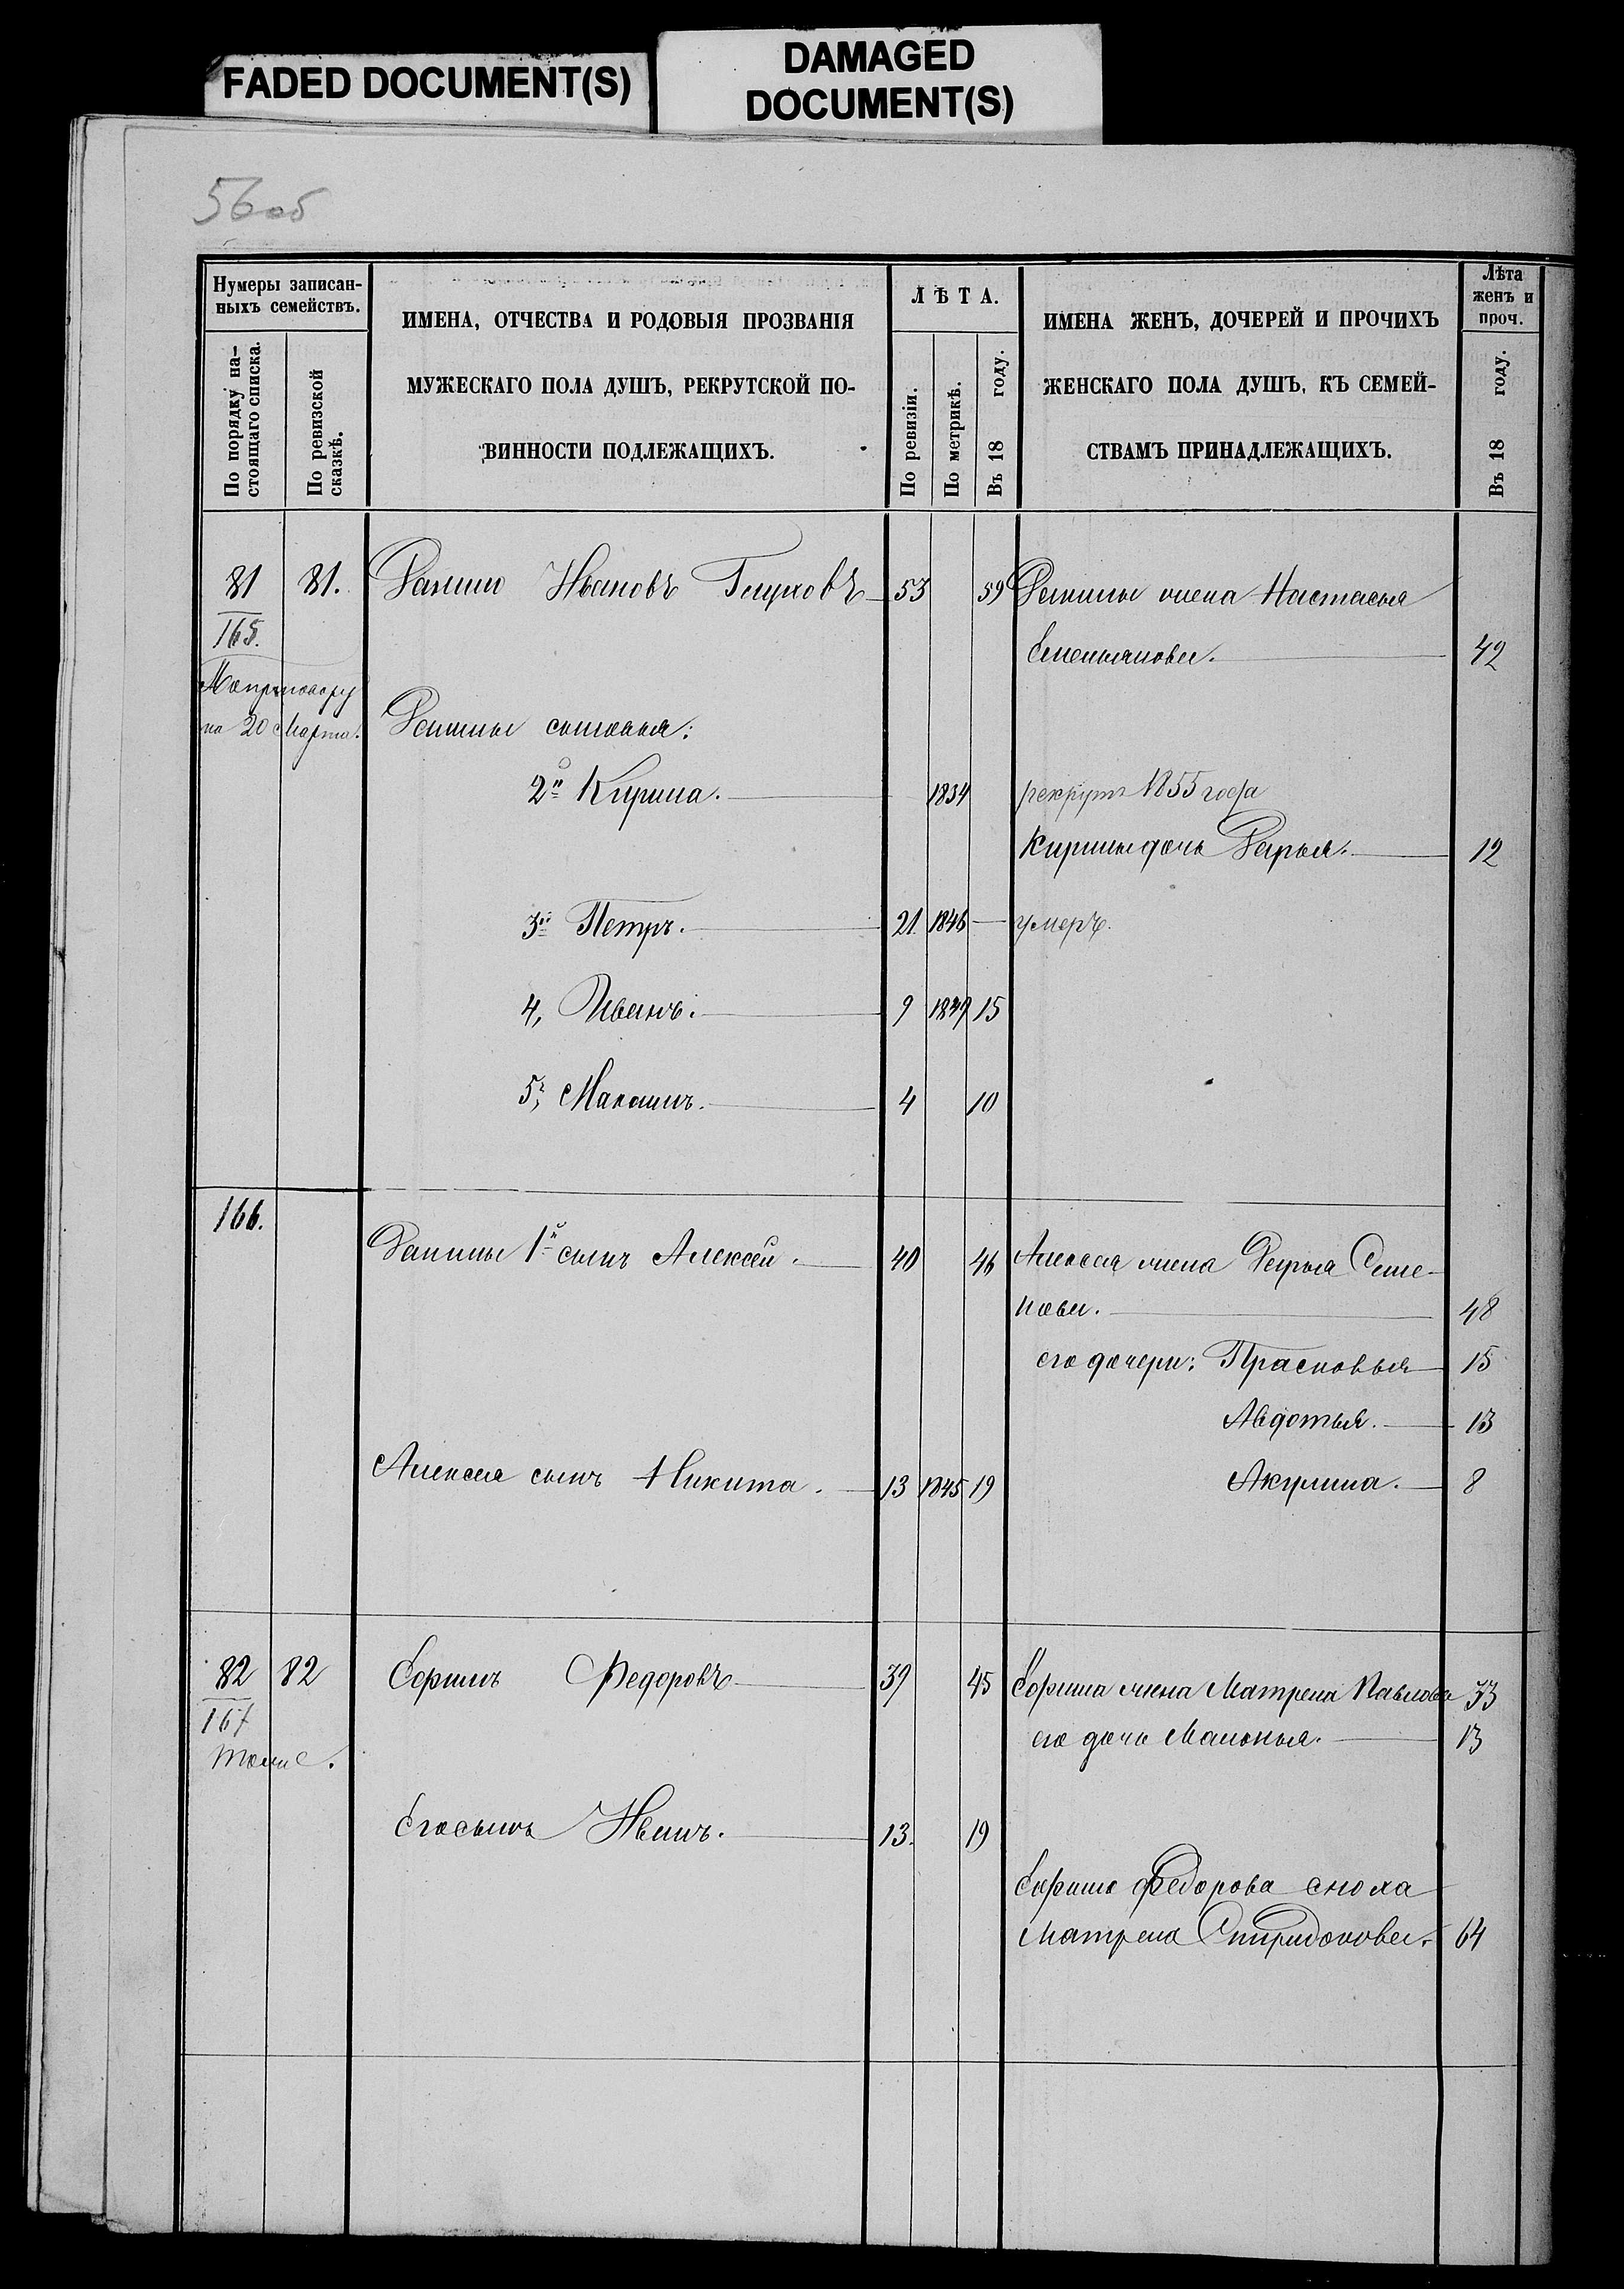 FADED DOCUMENT(S)
DAMAGED
DOCUMENT(S)
56 об
Нумеры записан-
ныхъ семействъ.
По порядку на-
стоящаго списка.
По ревизской
сказкѣ.
ИМЕНА, ОТЧЕСТВА И РОДОВЫЯ ПРОЗВАНІЯ
МУЖЕСКАГО ПОЛА ДУШЪ, РЕКРУТСКОЙ ПО-
ВИННОСТИ ПОДЛЕЖАЩИХЪ.
ЛѢТА.
По ревизіи.
По метрикѣ.
Въ 18 году.
ИМЕНА ЖЕНЪ, ДОЧЕРЕЙ И ПРОЧИХЪ
ЖЕНСКАГО ПОЛА ДУШЪ, КЪ СЕМЕЙ-
СТВАМЪ ПРИНАДЛЕЖАЩИХЪ.
Лѣта
женъ и
проч.
Въ 18 году.
81 81. Данило Ивановъ Глуховъ 53 59 Данилы жена Настасья
165.
Емельянова. 42
По приговору
на 20 Марта. Данилы сыновья:
2й Кирила. 1834 рекрутъ 1855 года
Кирилы дочь Дарья. 12
3й Петръ. 21 1846 — умеръ.
4, Иванъ. 9 1849 15
5, Максимъ. 4 10
166.
Данилы 1й сынъ Алексѣй. 40 46 Алексея жена Дарья Семе-
нова. 48
его дочери: Прасковья 15
Авдотья. 13
Алексея сынъ Никита. 13 1845 19 Акулина. 8
82 82 Ефимъ Федоровъ 39 45 Ефима жена Матрена Павлова 33
167
тоже. его дочь Маланья. 13
Его сынъ Иванъ. 13. 19
Ефима Федорова сноха
Матрена Спиридонова. 64